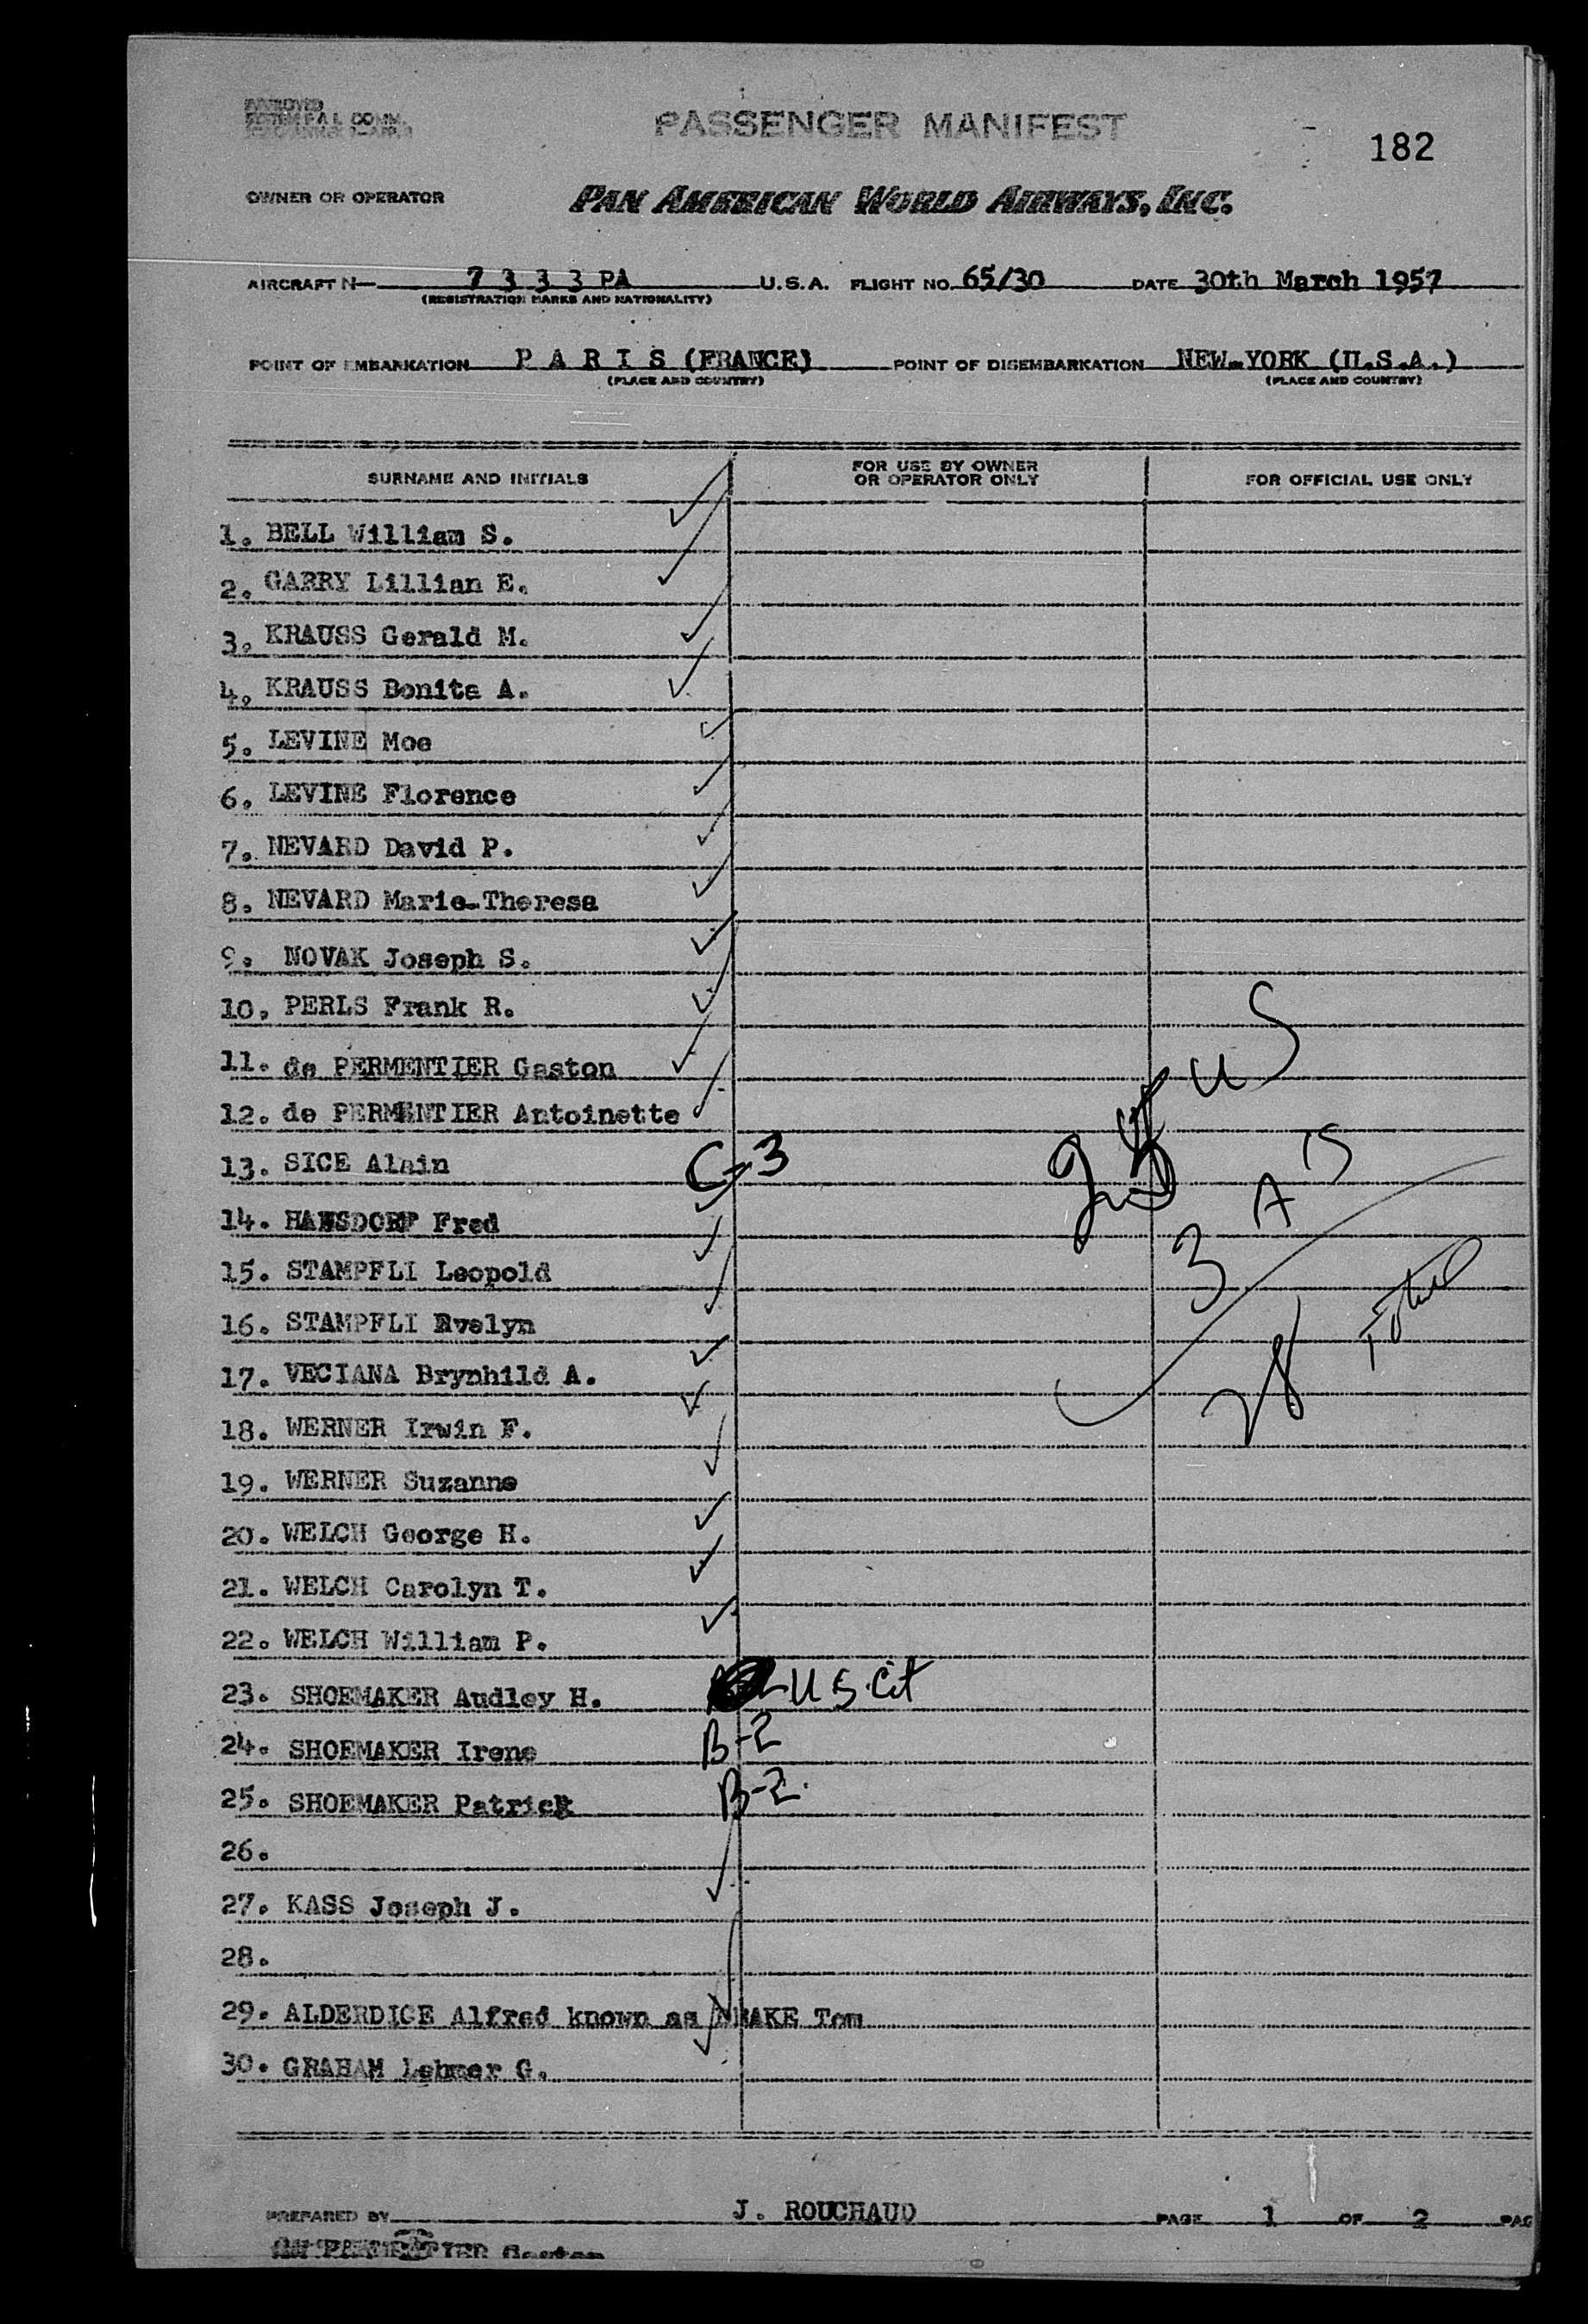 PASSENGER MANIFEST
182
OWNER OR OPERATOR PAN AMERICAN WORLD AIRWAYS, INC.
AIRCRAFT N 7 3 3 3 PA U.S.A. FLIGHT NO. 65/30 DATE 30th March 1957
(REGISTRATION MARKS AND NATIONALITY)
POINT OF EMBARKATION P A R I S (FRANCE) POINT OF DISEMBARKATION NEW-YORK (U.S.A.)
(PLACE AND COUNTRY) (PLACE AND COUNTRY)
SURNAME AND INITIALS FOR USE BY OWNER OR OPERATOR ONLY FOR OFFICIAL USE ONLY
1. BELL William S.
2. GARRY Lillian E.
3. KRAUSS Gerald M.
4. KRAUSS Bonita A.
5. LEVINE Moe
6. LEVINE Florence
7. NEVARD David P.
8. NEVARD Marie-Theresa
9. NOVAK Joseph S.
10. PERLS Frank R.
11. de PERMENTIER Gaston
US
12. de PERMENTIER Antoinette
13. SICE Alain C-3
3 A's
14. HANSDORF Fred
15. STAMPFLI Leopold
16. STAMPFLI Evelyn
28 Total
17. VECIANA Brynhild A.
18. WERNER Irwin F.
19. WERNER Suzanne
20. WELCH George H.
21. WELCH Carolyn T.
22. WELCH William P.
23. SHOEMAKER Audley H. U S Cit
24. SHOEMAKER Irene B-2
25. SHOEMAKER Patrick B-2.
26.
27. KASS Joseph J.
28.
29. ALDERDICE Alfred known as DRAKE Tom
30. GRAHAM Lehmer G.
PREPARED BY J. ROUCHAUD PAGE 1 OF 2